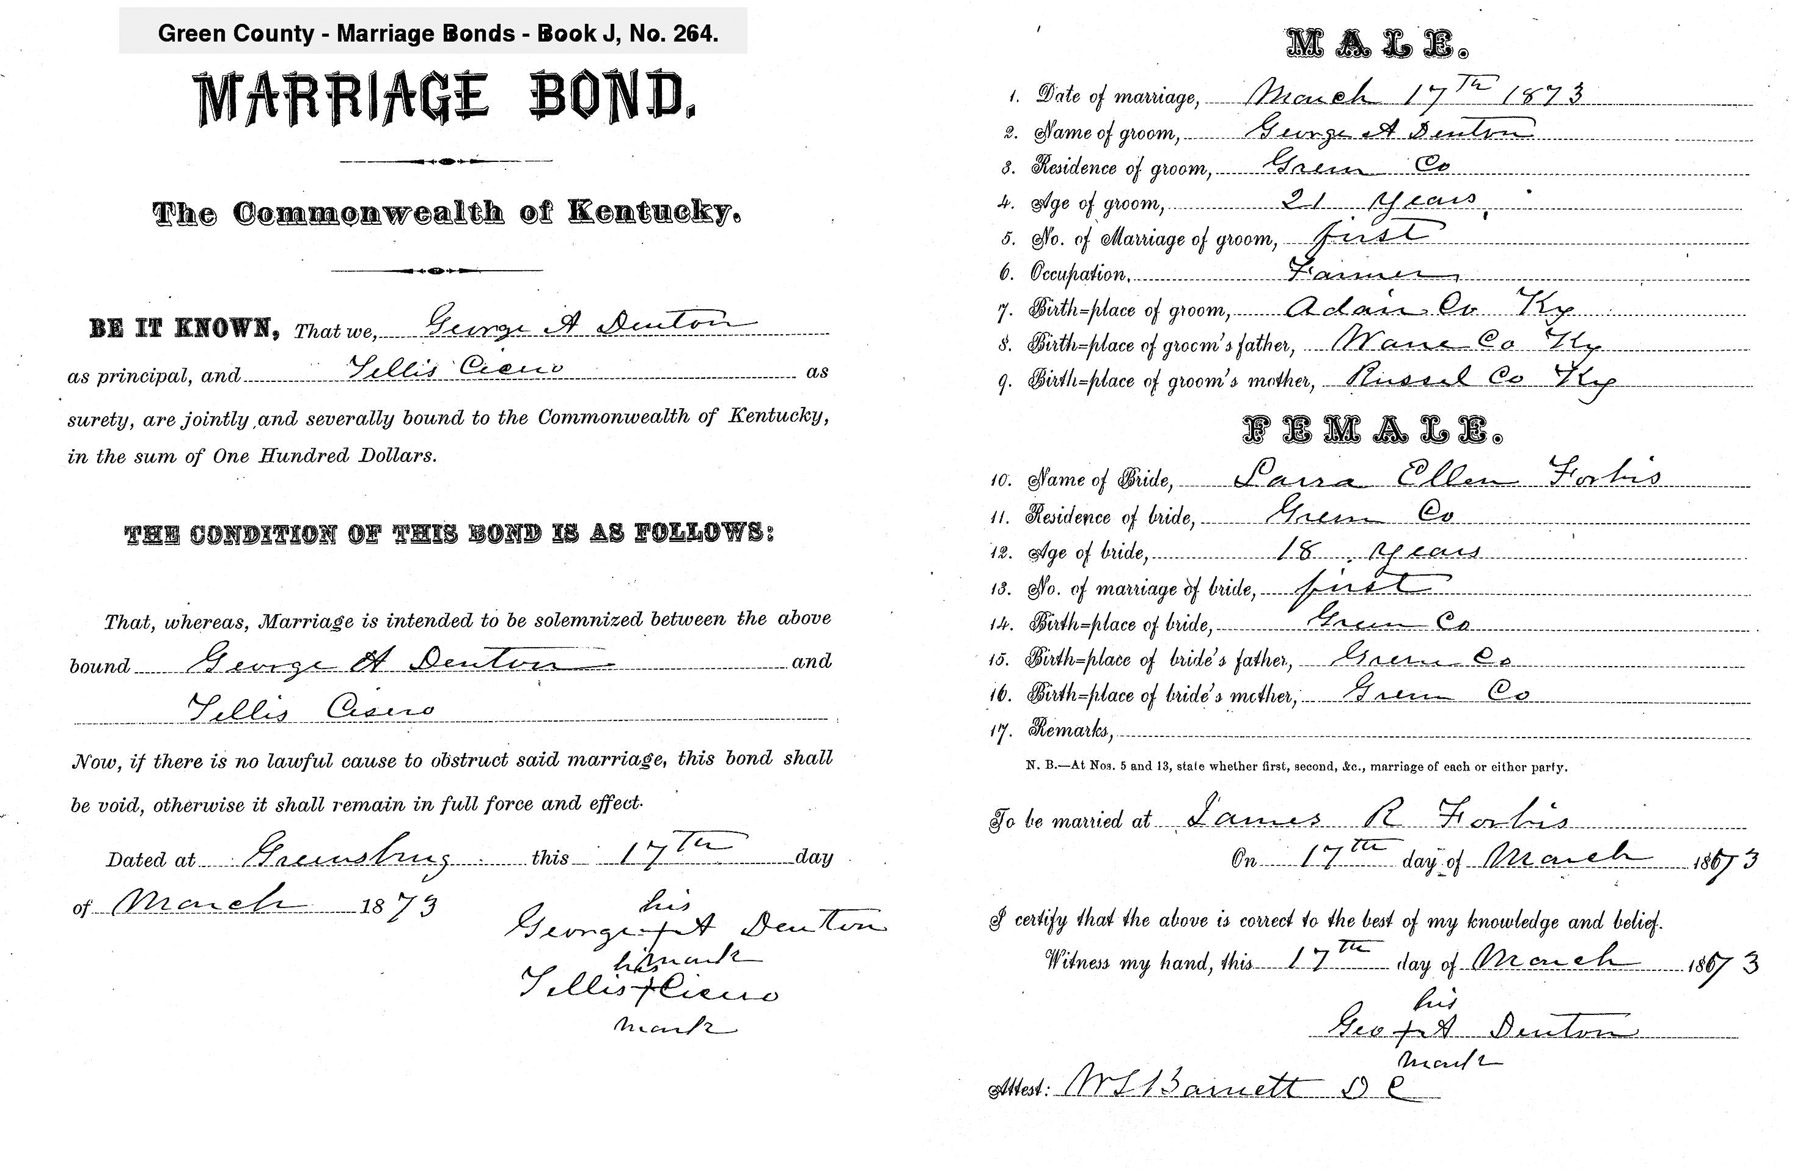 Green County - Marriage Bonds - Book J, No. 264.
MARRIAGE BOND.
The Commonwealth of Kentucky.
BE IT KNOWN, That we, George A Denton
as principal, and Tellis Cicero as
surety, are jointly and severally bound to the Commonwealth of Kentucky,
in the sum of One Hundred Dollars.
THE CONDITION OF THIS BOND IS AS FOLLOWS:
That, whereas, Marriage is intended to be solemnized between the above
bound George A Denton and
Tellis Cisero
Now, if there is no lawful cause to obstruct said marriage, this bond shall
be void, otherwise it shall remain in full force and effect.
Dated at Greensburg this 17th day
of March 1873
his
George + A Denton
mark
his
Tellis + Cicero
mark
MALE.
1. Date of marriage, March 17th 1873
2. Name of groom, George A Denton
3. Residence of groom, Green Co
4. Age of groom, 21 years
5. No. of Marriage of groom, first
6. Occupation, Farmer
7. Birth=place of groom, Adair Co Ky
8. Birth=place of groom's father, Wane Co Ky
9. Birth=place of groom's mother, Russel Co Ky
FEMALE.
10. Name of Bride, Laura Ellen Forbis
11. Residence of bride, Green Co
12. Age of bride, 18 years
13. No. of marriage of bride, first
14. Birth=place of bride, Green Co
15. Birth=place of bride's father, Green Co
16. Birth=place of bride's mother, Green Co
17. Remarks,
N. B.—At Nos. 5 and 13, state whether first, second, &c., marriage of each or either party.
To be married at James R Forbis
On 17th day of March 1873
I certify that the above is correct to the best of my knowledge and belief.
Witness my hand, this 17th day of March 1873
his
Geo + A Denton
mark
Attest: W S Barnett D C